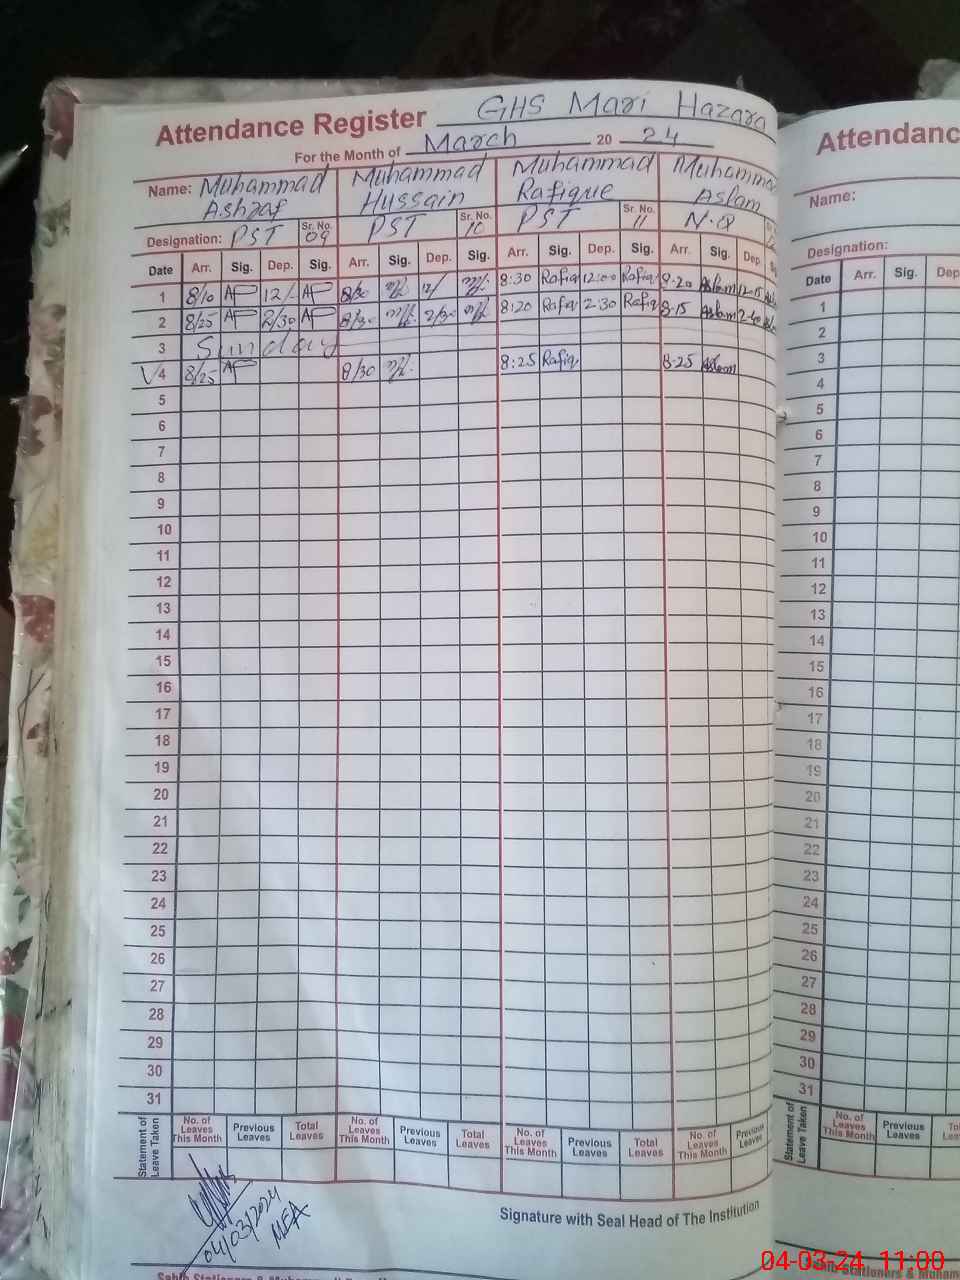 Attendance Register GHS Mari Hazara
For the Month of March 20 24
Name: Muhammad Ashraf Muhammad Hussain Muhammad Rafique Muhamma Aslam
Designation: PST Sr. No. 09 PST Sr. No. 10 PST Sr. No. 11 N.Q
Date Arr. Sig. Dep. Sig. Arr. Sig. Dep. Sig. Arr. Sig. Dep. Sig. Arr. Sig. Dep.
1 8/10 AP 12/- AP 8/30 12/ 8:30 Rafiq 12:00 Rafiq 8-20 Aslam 12-15
2 8/25 AP 2/30 AP 8/30 2/30 8:20 Rafiq 2:30 Rafiq 8-15 Aslam 2-40
3 Sunday
4 8/25 AP 8/30 8:25 Rafiq 8-25 Aslam
5
6
7
8
9
10
11
12
13
14
15
16
17
18
19
20
21
22
23
24
25
26
27
28
29
30
31
Statement of Leave Taken
No. of Leaves This Month Previous Leaves Total Leaves No. of Leaves This Month Previous Leaves Total Leaves No. of Leaves This Month Previous Leaves Total Leaves No. of Leaves This Month Previous Leaves
04/03/2024
MEA
Signature with Seal Head of The Institution
Attendanc
Name:
Designation:
Date Arr. Sig. Dep
1
2
3
4
5
6
7
8
9
10
11
12
13
14
15
16
17
18
19
20
21
22
23
24
25
26
27
28
29
30
31
Statement of Leave Taken
No. of Leaves This Month Previous Leaves
Sahib Stationers & Muham
04-03-24 11:00